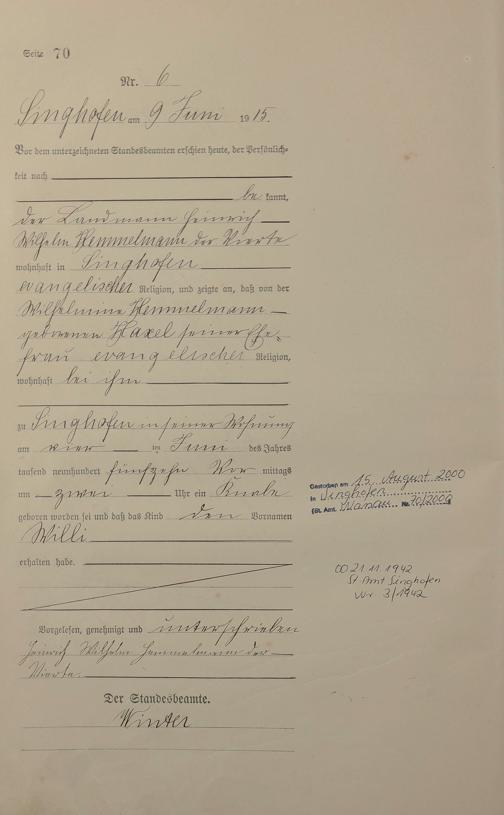 Seite 70
Nr. 6
Singhofen am 9 Juni 1915.
Vor dem unterzeichneten Standesbeamten erschien heute, der Persönlich-
keit nach
bekannt,
der Landmann Heinrich
Wilhelm Hemmelmann der Vierte
wohnhaft in Singhofen
evangelischer Religion, und zeigte an, daß von der
Wilhelmine Hemmelmann
geborenen seiner Ehe-
frau evangelischer Religion,
wohnhaft bei ihm
zu Singhofen in seiner Wohnung
am vier im Juni des Jahres
tausend neunhundert fünfzehn Vor mittags
um zwei Uhr ein Knabe
geboren worden sei und daß das Kind den Vornamen
Willi
erhalten habe.
Vorgelesen, genehmigt und unterschrieben
Heinrich Wilhelm Hemmelmann der
Vierte.
Der Standesbeamte.
Winter
Gestorben am 15. August 2000
in Singhofen
(St. Amt. Nassau Nr. 70/2000)
OO 21.11.1942
St. Amt Singhofen
Nr 3/1942